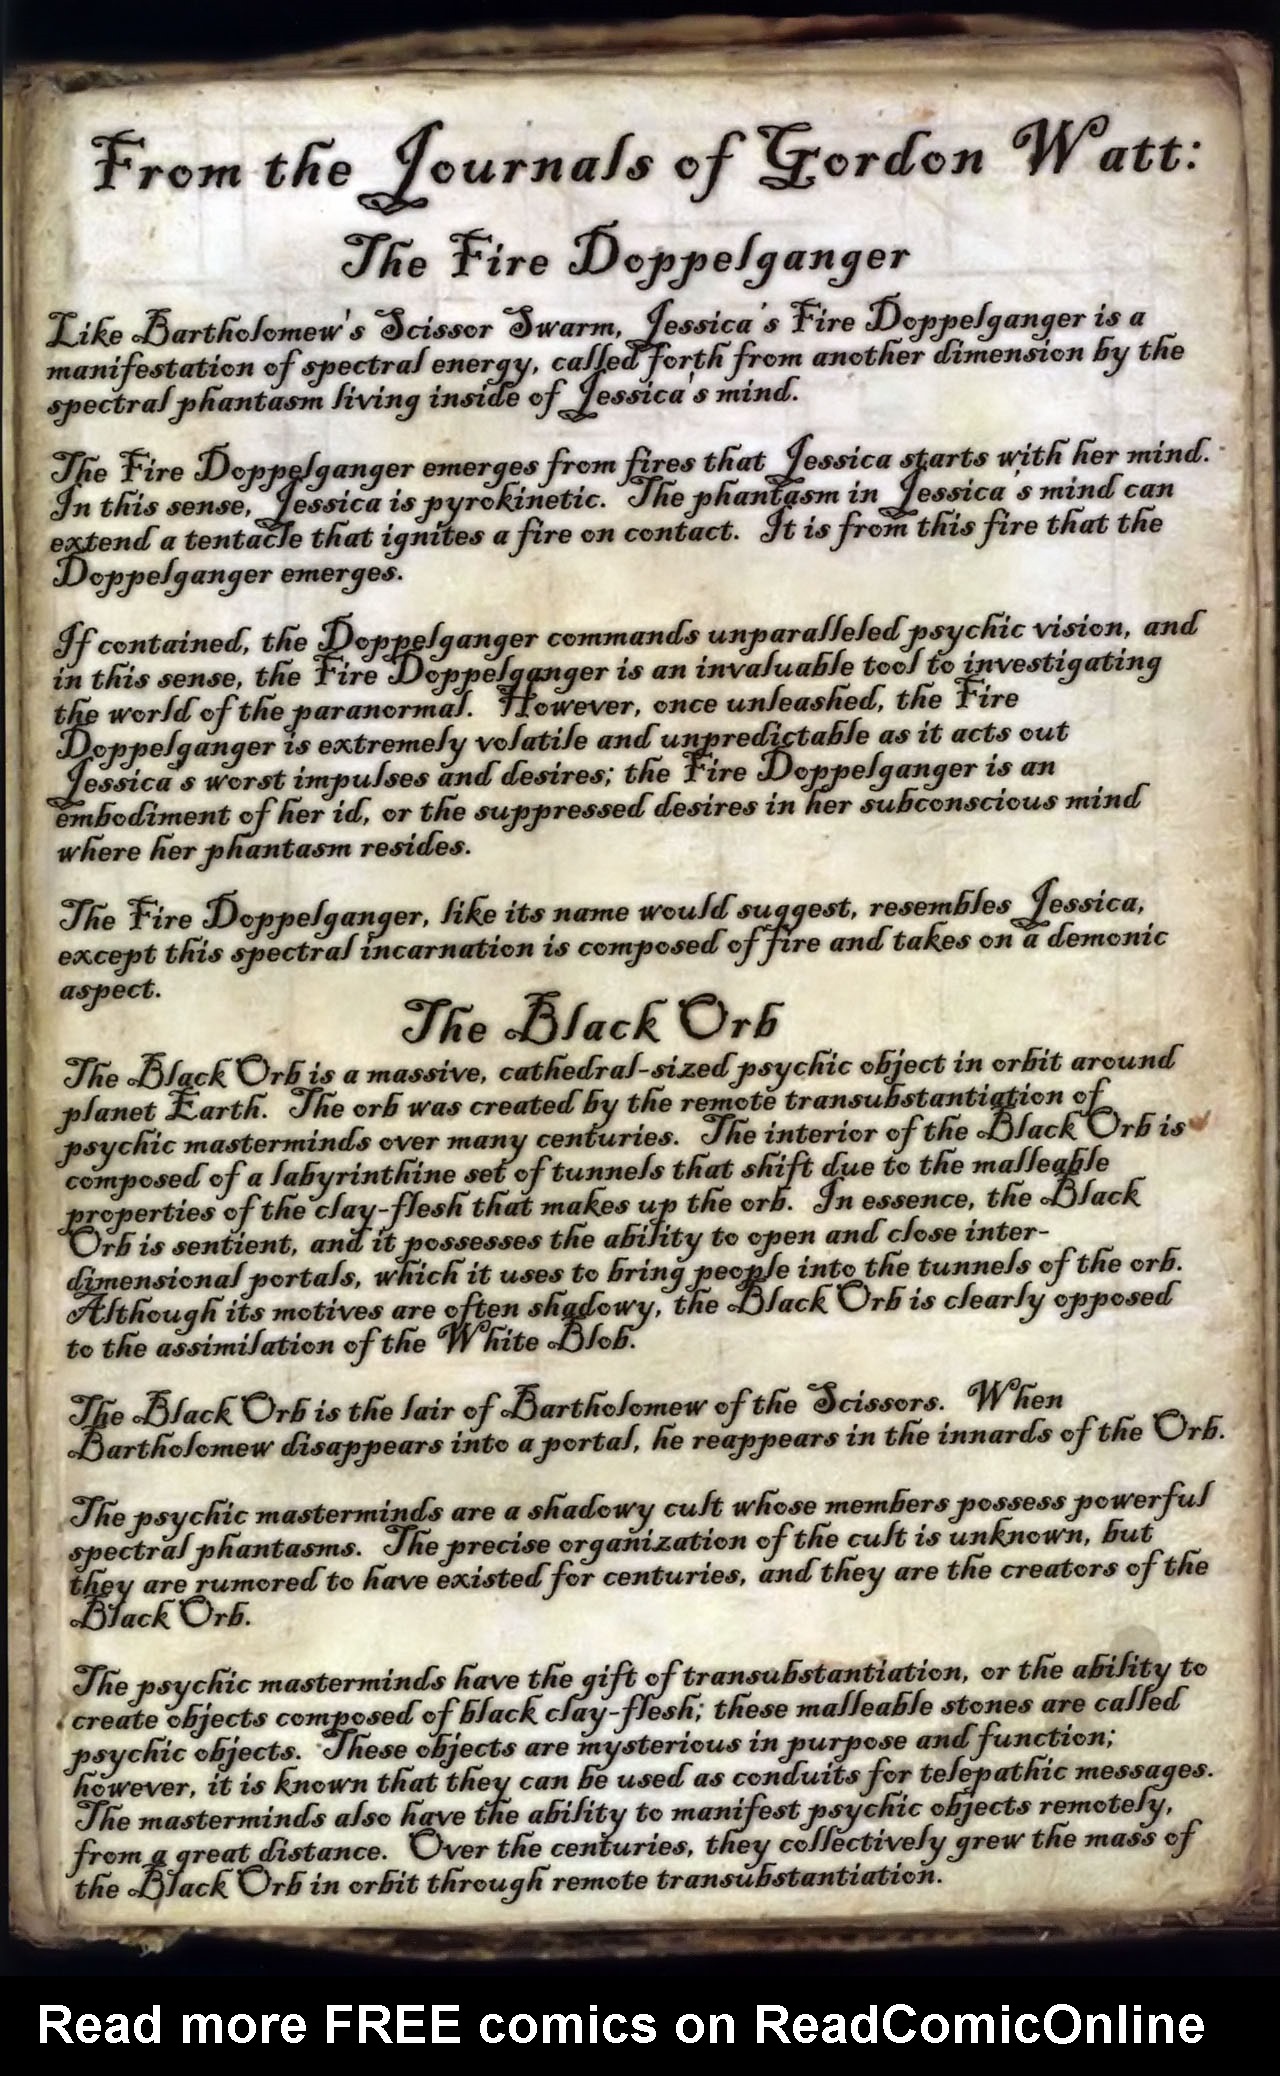 From the Journals of Gordon Watt:
The Fire Doppelganger
Like Bartholomew's Scissor Swarm, Jessica's Fire Doppelganger is a
manifestation of spectral energy, called forth from another dimension by the
spectral phantasm living inside of Jessica's mind.
The Fire Doppelganger emerges from fires that Jessica starts with her mind.
In this sense, Jessica is pyrokinetic. The phantasm in Jessica's mind can
extend a tentacle that ignites a fire on contact. It is from this fire that the
Doppelganger emerges.
If contained, the Doppelganger commands unparalleled psychic vision, and
in this sense, the Fire Doppelganger is an invaluable tool to investigating
the world of the paranormal. However, once unleashed, the Fire
Doppelganger is extremely volatile and unpredictable as it acts out
Jessica's worst impulses and desires; the Fire Doppelganger is an
embodiment of her id, or the suppressed desires in her subconscious mind
where her phantasm resides.
The Fire Doppelganger, like its name would suggest, resembles Jessica,
except this spectral incarnation is composed of fire and takes on a demonic
aspect.
The Black Orb
The Black Orb is a massive, cathedral-sized psychic object in orbit around
planet Earth. The orb was created by the remote transubstantiation of
psychic masterminds over many centuries. The interior of the Black Orb is
composed of a labyrinthine set of tunnels that shift due to the malleable
properties of the clay-flesh that makes up the orb. In essence, the Black
Orb is sentient, and it possesses the ability to open and close inter-
dimensional portals, which it uses to bring people into the tunnels of the orb.
Although its motives are often shadowy, the Black Orb is clearly opposed
to the assimilation of the White Blob.
The Black Orb is the lair of Bartholomew of the Scissors. When
Bartholomew disappears into a portal, he reappears in the innards of the Orb.
The psychic masterminds are a shadowy cult whose members possess powerful
spectral phantasms. The precise organization of the cult is unknown, but
they are rumored to have existed for centuries, and they are the creators of the
Black Orb.
The psychic masterminds have the gift of transubstantiation, or the ability to
create objects composed of black clay-flesh; these malleable stones are called
psychic objects. These objects are mysterious in purpose and function;
however, it is known that they can be used as conduits for telepathic messages.
The masterminds also have the ability to manifest psychic objects remotely,
from a great distance. Over the centuries, they collectively grew the mass of
the Black Orb in orbit through remote transubstantiation.
Read more FREE comics on ReadComicOnline